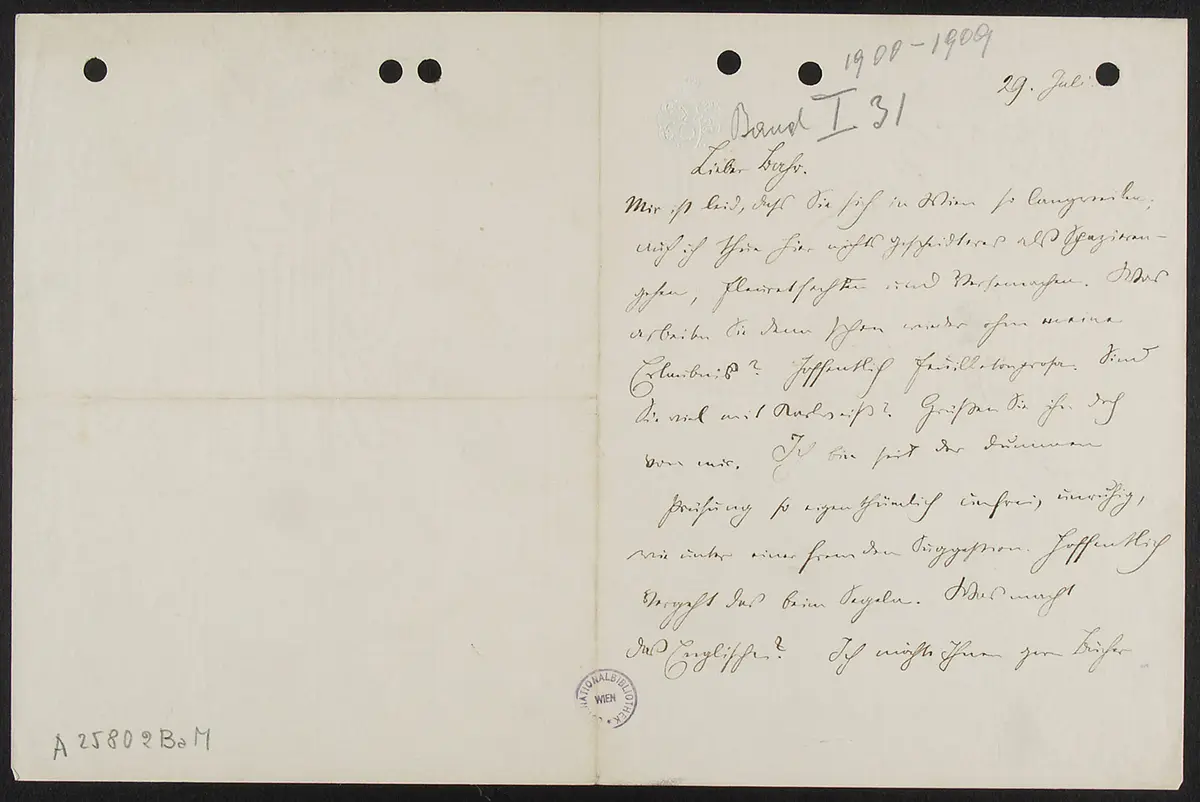 1900-1909
29. Juli
Band I 31
Lieber Bahr.
Mir ist leid, dass Sie sich in Wien so langweilen;
auch ich thue hier nichts gescheidteres als Spazieren-
gehen, Fleuretfechten und Versemachen. Was
arbeiten Sie denn schon wieder ohne meine
Erlaubniß? Hoffentlich Feuilletonprosa. Sind
Sie viel mit Karlweiß? Grüßen Sie ihn doch
von mir. Ich bin seit der dummen
Prüfung so eigenthümlich unfrei, unruhig,
wie unter einer fremden Suggestion. Hoffentlich
vergeht das beim Segeln. Was macht
das Englische? Ich möchte Ihnen gern Bücher
NATIONALBIBLIOTHEK
WIEN
A 25802 BaM